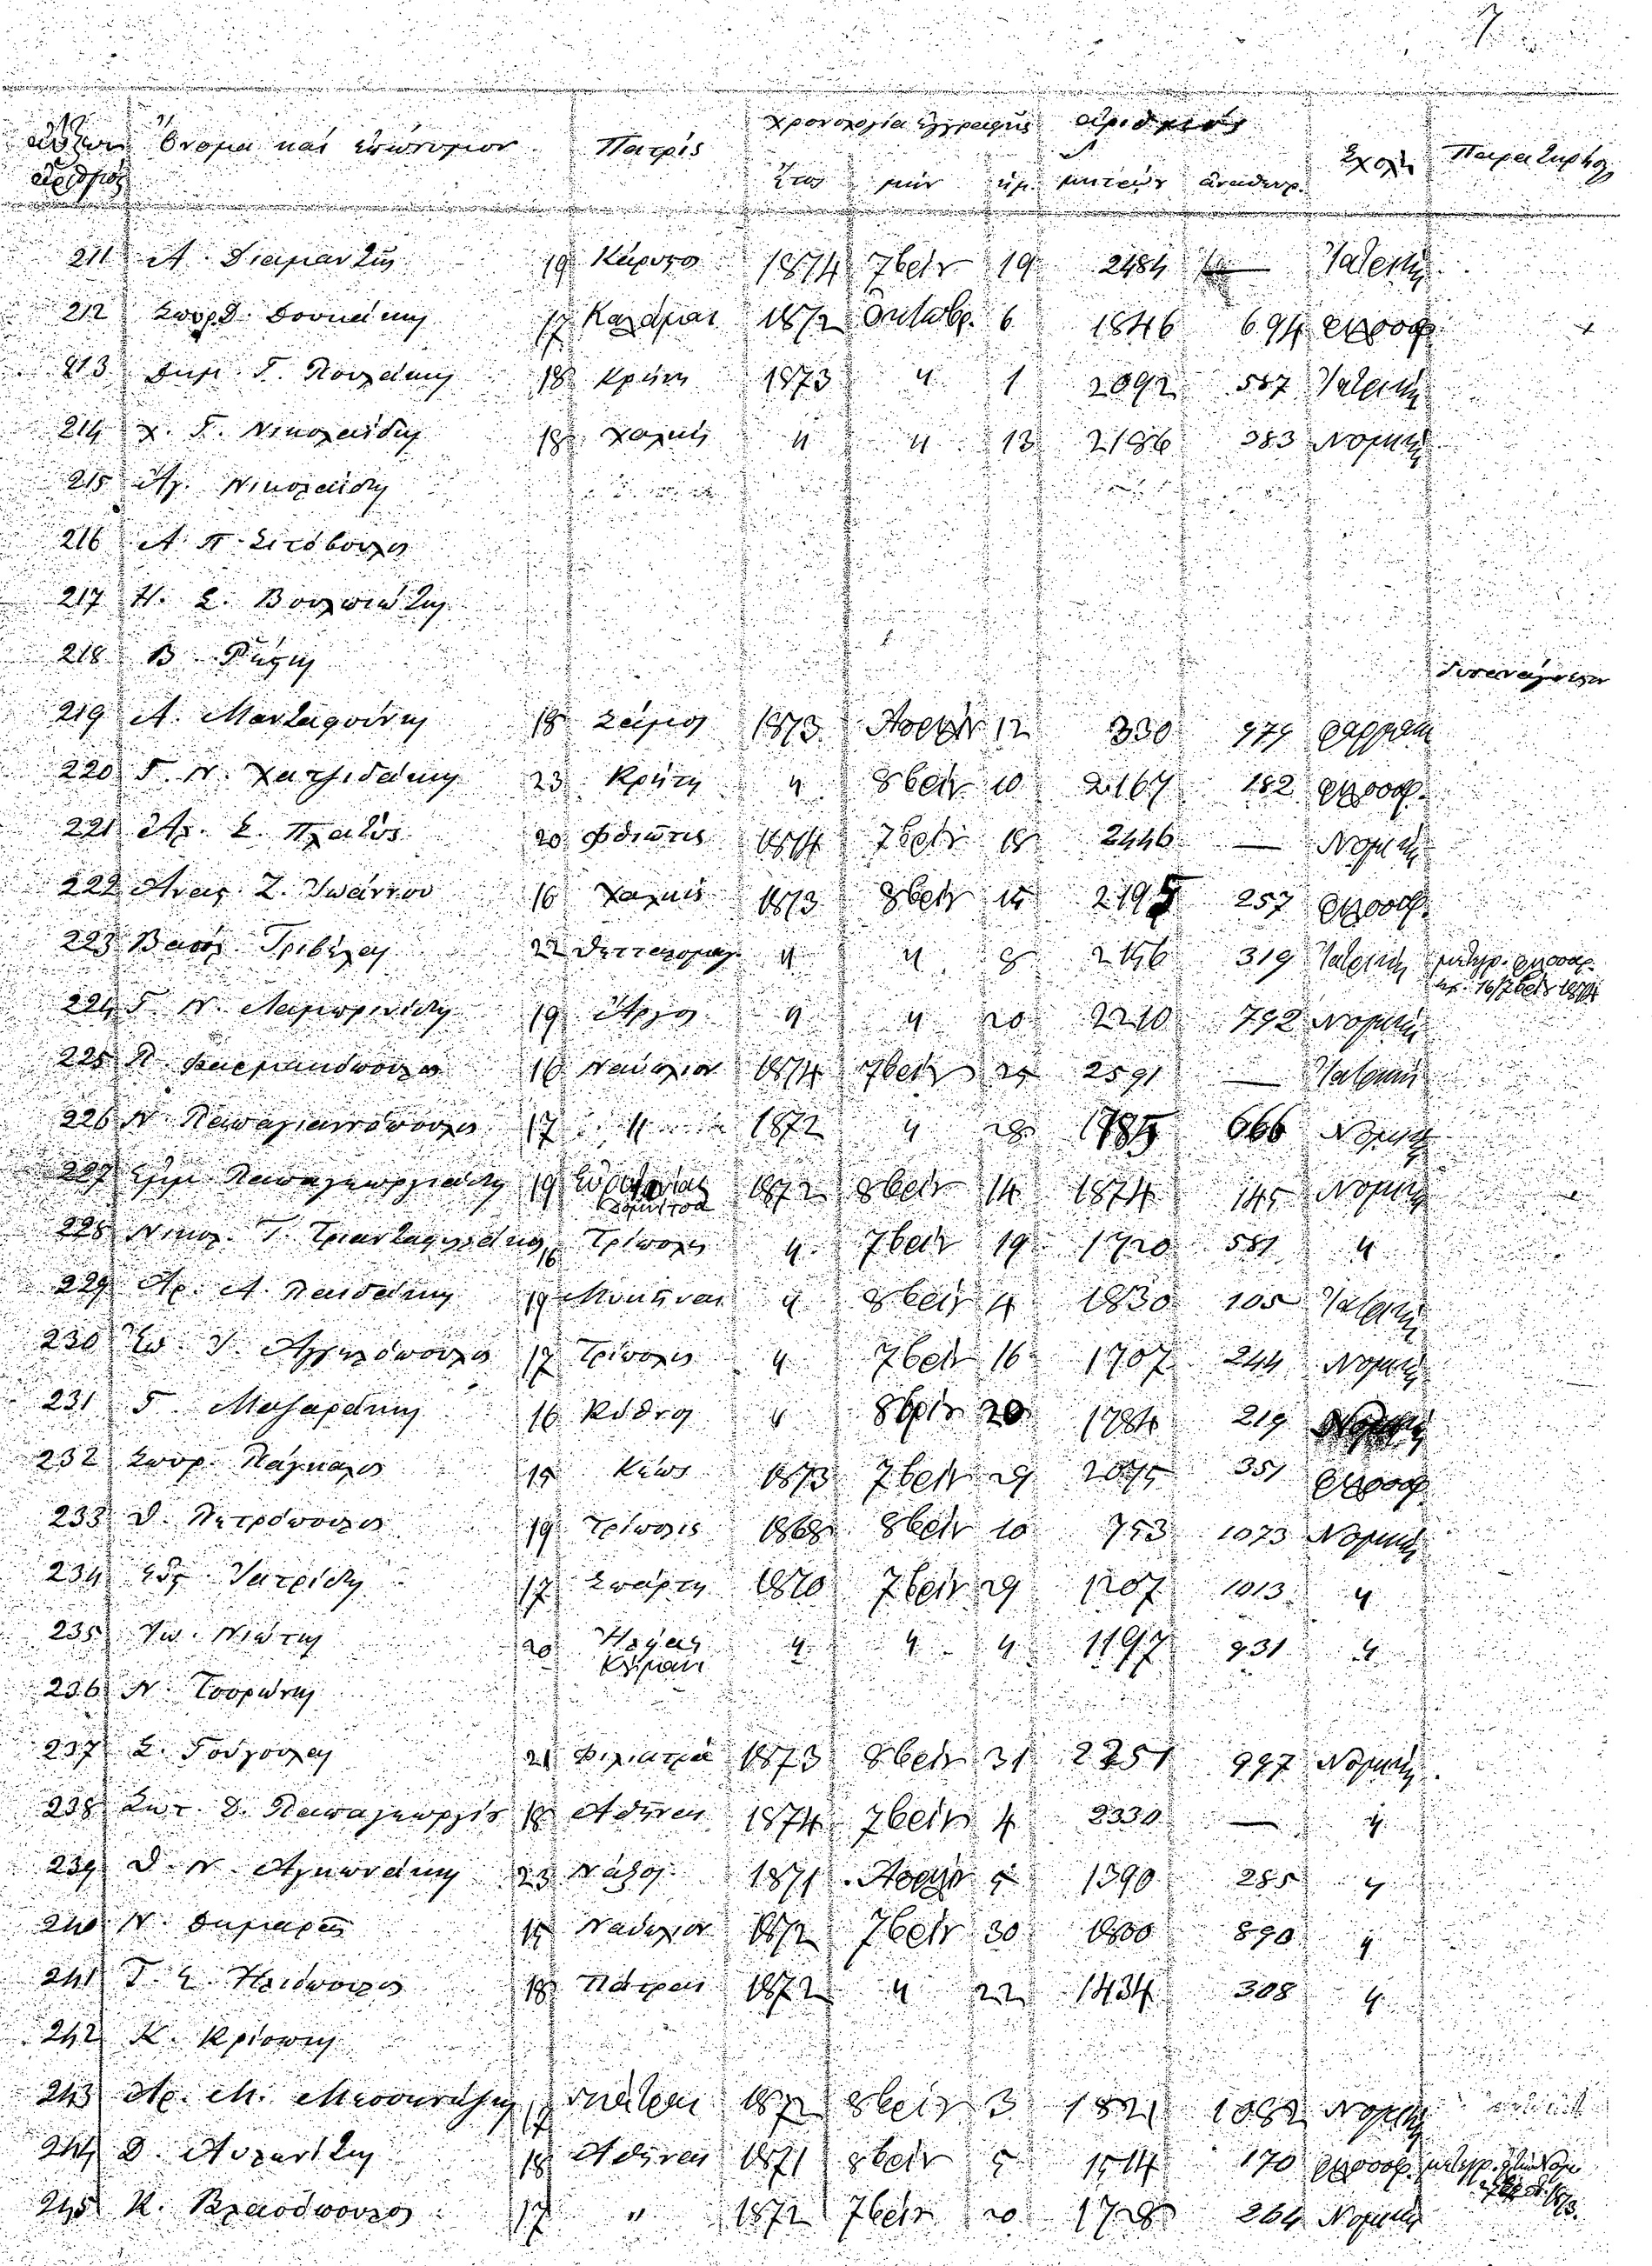 7
αὔξων Ὄνομα καὶ ἐπώνυμον Πατρὶς Χρονολογία ἐγγραφῆς ἀριθμὸς Σχολὴ Παρατηρήσ.
ἀριθμὸς ἔτος μὴν ἡμ. μητρῴου ἀναθεωρ.
211 Α. Διαμαντῆς 19 Κάρυστο 1874 7βρίν 19 2484 — Ἰατρικὴ
212 Σπυρ. Δ. Δουκάκης 17 Καλάμαι 1872 Ὀκτωβρ. 6 1846 694 Φιλοσοφ
213 Δημ. Γ. Πουλάκης 18 Κρήνη 1873 〃 1 2092 587 Ἰατρικὴ
214 Χ. Γ. Νικολαΐδης 18 Χαλκὶς 〃 〃 13 2186 383 Νομικὴ
215 Ἀγ. Νικολαΐδης
216 Α. Π. Σιτόβουλος
217 Η. Σ. Βουλπιώτης
218 Β. Ρήγης
219 Α. Μανταφούνης 18 Σάμος 1873 Ἀπριλ 12 330 979 Φαρμακ
220 Γ. Ν. Χατζιδάκης 23 Κρήτη 〃 8βρίν 10 2167 182 Φιλοσοφ.
221 Ἀρ. Σ. Πλατὺς 20 Φθιῶτις 1874 7βρίν 18 2446 — Νομικὴ
222 Ἀνας. Ζ. Ἰωάννου 16 Χαλκὶς 1873 8βρίν 15 2195 257 Φιλοσοφ.
223 Βασίλ Τριβέλας 22 Θετταλομαγ. 〃 〃 8 2156 319 Ἰατρικὴ μετεγρ. Φιλοσοφ.
16/7βρίν 1874
224 Γ. Ν. Λαμπρινίδης 19 Ἄργος 〃 〃 20 2210 792 Νομικὴ
225 Π. Φαρμακόπουλος 16 Ναύπλιον 1874 7βρίν 25 2591 — Ἰατρικὴ
226 Ν. Παπαγιαννόπουλος 17 〃 1872 〃 28 1785 666 Νομικὴ
227 Ἐμμ Παπαγεωργιάδης 19 Εὐρυτανίας 1872 8βρίν 14 1874 145 Νομικὴ
228 Νικολ. Γ. Τριανταφυλλάκος 16 Τρίπολις 〃 7βρίν 19 1720 581 〃
229 Ἀρ. Α. Παιδάκης 19 Μυκῆναι 〃 8βρίν 4 1830 105 Ἰατρικὴ
230 Σπ. Ἰ. Ἀγγελόπουλος 17 Τρίπολις 〃 7βρίν 16 1707 244 Νομικὴ
231 Γ. Μαζαράκης 16 Κύθνος 〃 8βρίν 20 1784 219 Νομικὴ
232 Σπυρ. Πάγκαλος 15 Κέως 1873 7βρίν 29 2075 351 Φιλοσοφ
233 Δ. Πετρόπουλος 19 Τρίπολις 1868 8βρίν 10 753 1073 Νομικὴ
234 Εὐς. Ἰατρίδης 17 Σπάρτη 1870 7βρίν 29 1207 1013 〃
235 Ἰω. Νιώτης 20 Ἡλείας 〃 〃 〃 1197 931 〃
236 Ν. Τσορώνης
237 Σ. Γούγουλης 21 Φιλιατρὰ 1873 8βρίν 31 2251 997 Νομικὴ
238 Σωτ. Δ. Παπαγεωργίου 18 Ἀθῆναι 1874 7βρίν 4 2330 — 〃
239 Δ. Ν. Ἀγιωνάκης 23 Νάξος 1871 Ἀπριλ 5 1390 285 〃
240 Ν. Δημαρᾶς 15 Ναύπλιον 1872 7βρίν 30 1800 890 〃
241 Γ. Σ. Ἠλιόπουλος 18 Πάτραι 1872 〃 22 1434 308 〃
242 Κ. Κρίσπης
243 Ἀρ. Μ. Μεσσηνέζης 17 Πάτραι 1872 8βρίν 3 1821 1082 Νομικὴ
244 Δ. Αὐλωνίτης 18 Ἀθῆναι 1871 8βρίν 5 1514 170 Φιλοσοφ. μετεγρ.
245 Κ. Βλασόπουλος 17 〃 1872 7βρίν 20 1728 264 Νομικὴ